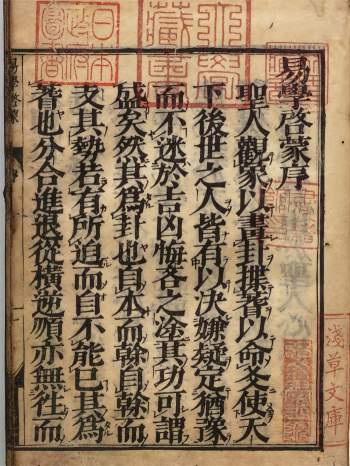 易學啓蒙序
聖人觀象以畫卦揲蓍以命爻使天
下後世之人皆有以决嫌疑定猶豫
而不迷於吉凶悔吝之塗其功可謂
盛矣然其爲卦也自本而幹自幹而
支其勢若有所迫而自不能已其爲
蓍也分合進退從横逆順亦無往而
淺草文庫
日本政府圖書